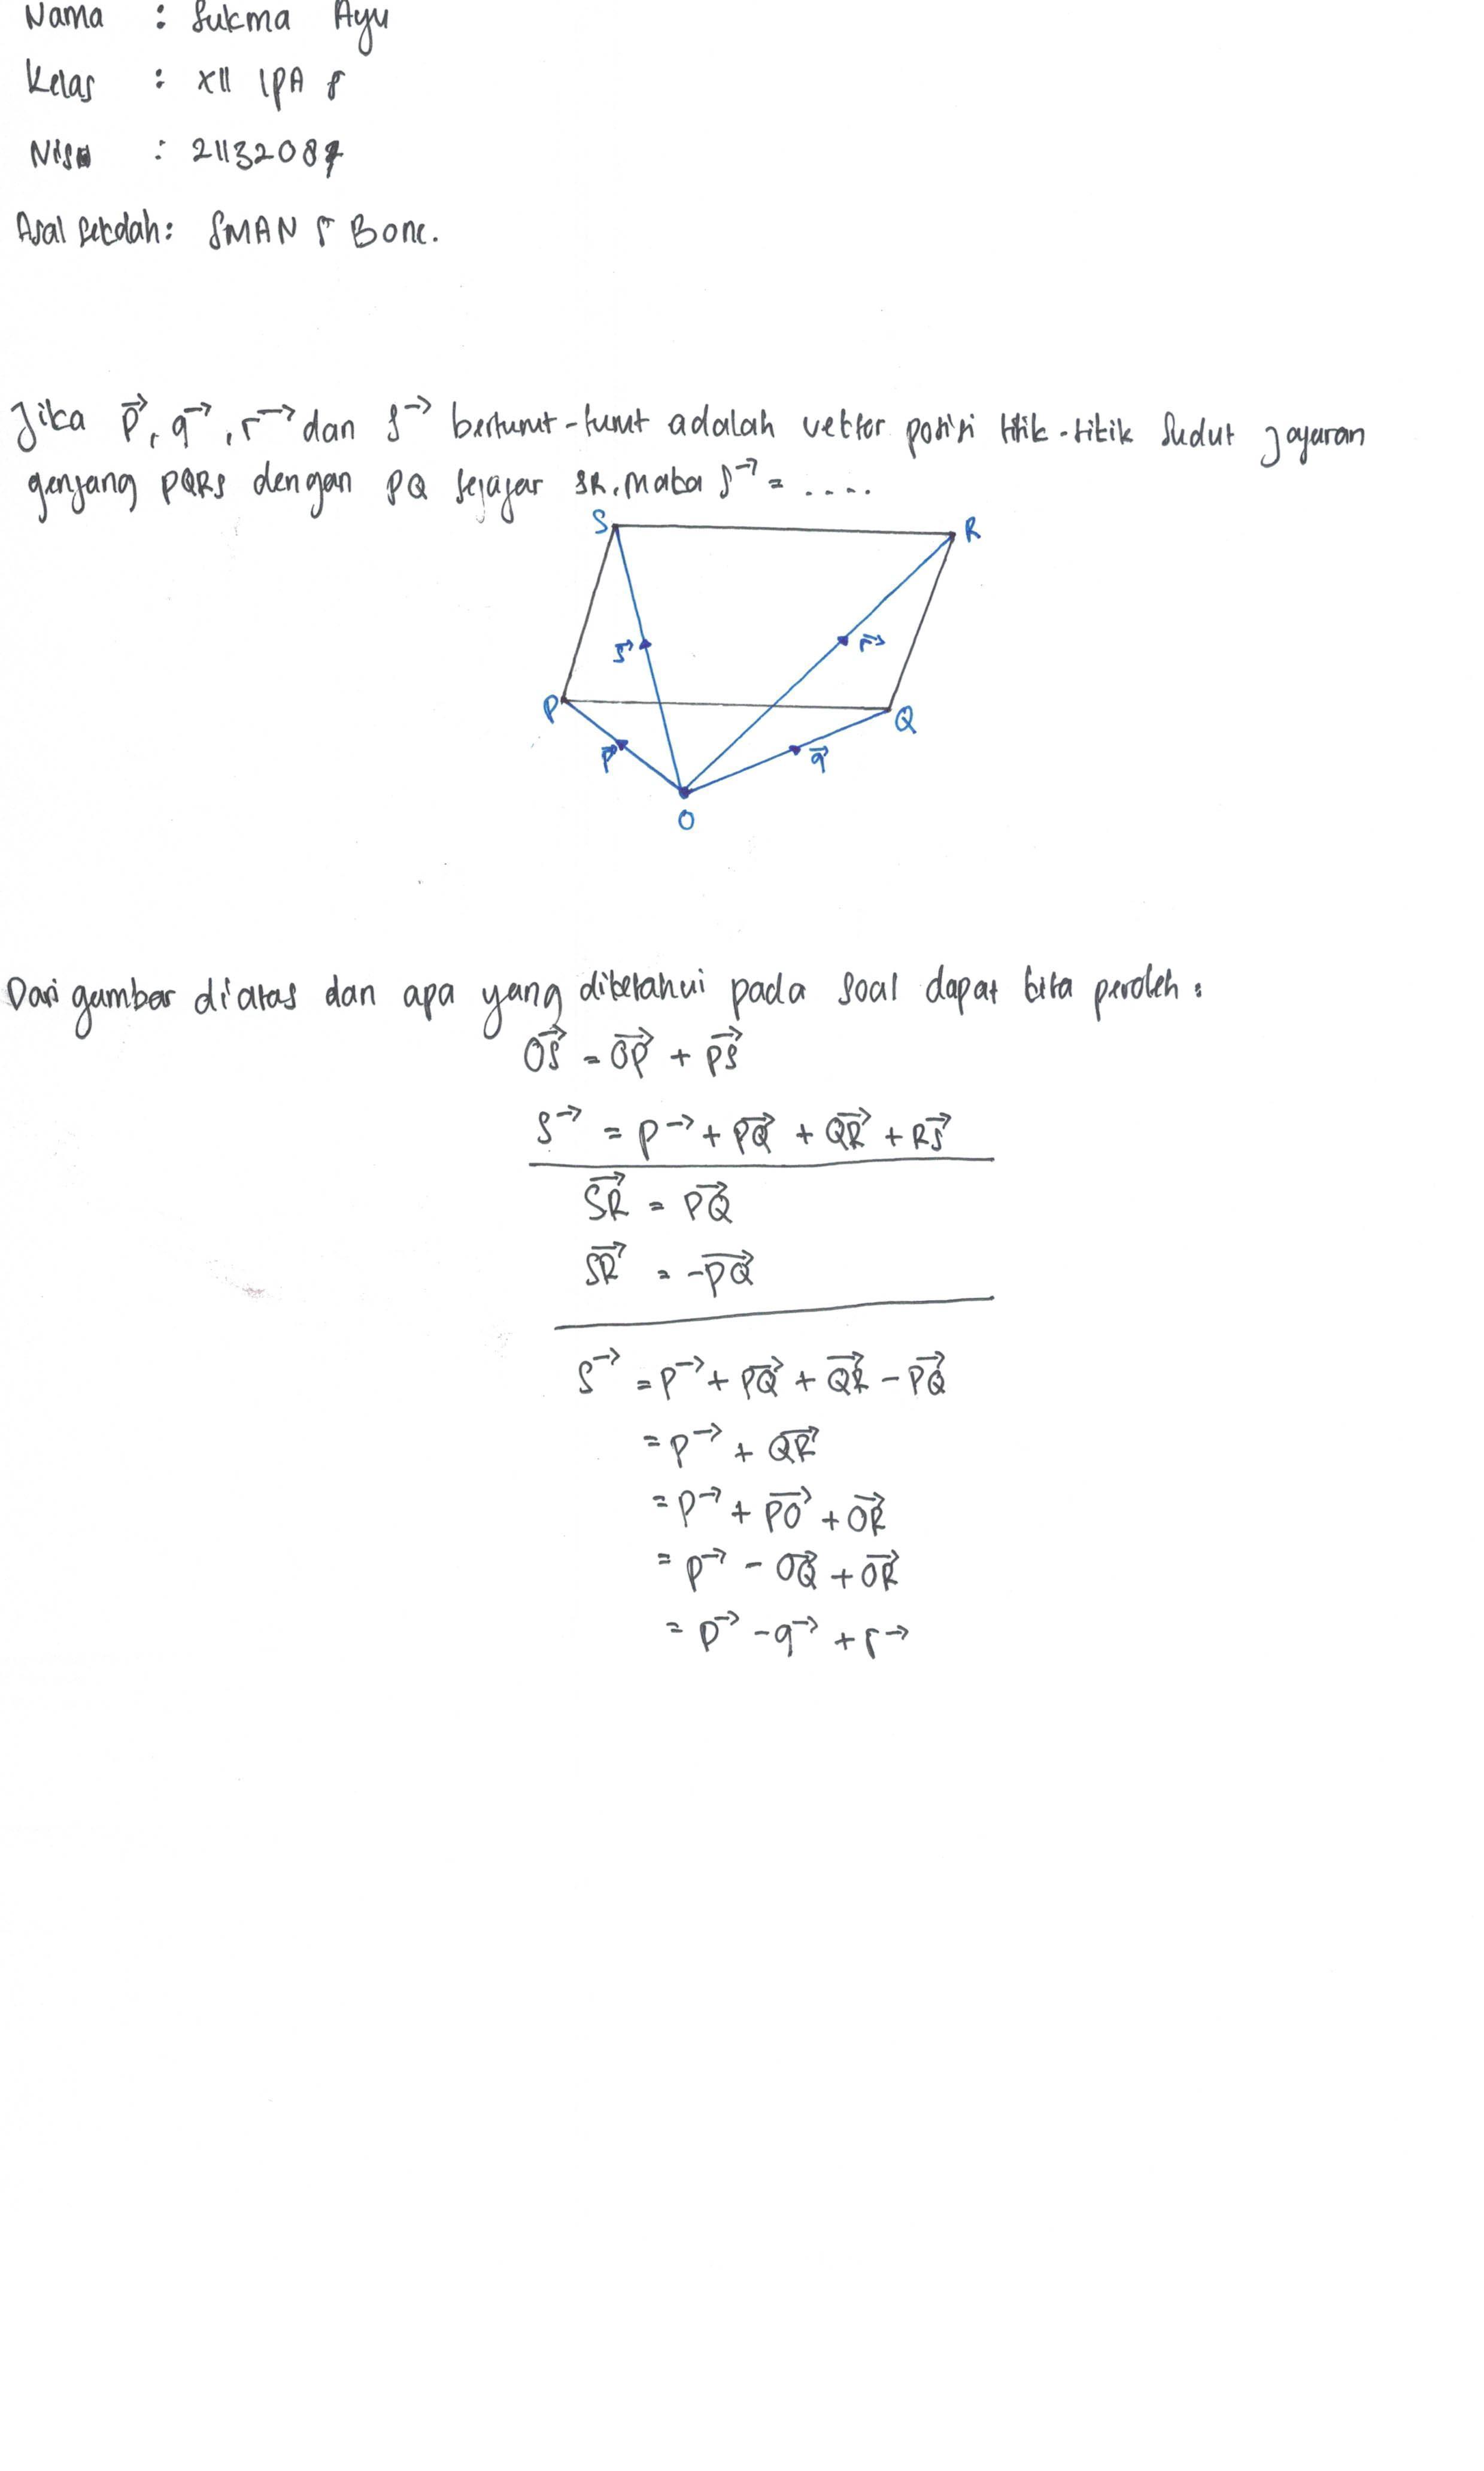 Nama : Sukma Ayu
Kelas : XII IPA 5
Nisn : 21132087
Asal sekolah: SMAN 5 Bone.
Jika p→, q→, r→ dan s→ berturut-turut adalah vektor posisi titik-titik sudut jajaran
genjang PQRS dengan PQ sejajar SR. maka s→ = ....
S
R
s→
r→
P
Q
p→
q→
O
Dari gambar diatas dan apa yang diketahui pada soal dapat kita peroleh :
OS→ = OP→ + PS→
s→ = p→ + PQ→ + QR→ + RS→
SR→ = PQ→
SR→ = -PQ→
s→ = p→ + PQ→ + QR→ - PQ→
= p→ + QR→
= p→ + PO→ + OR→
= p→ - OQ→ + OR→
= p→ - q→ + r→